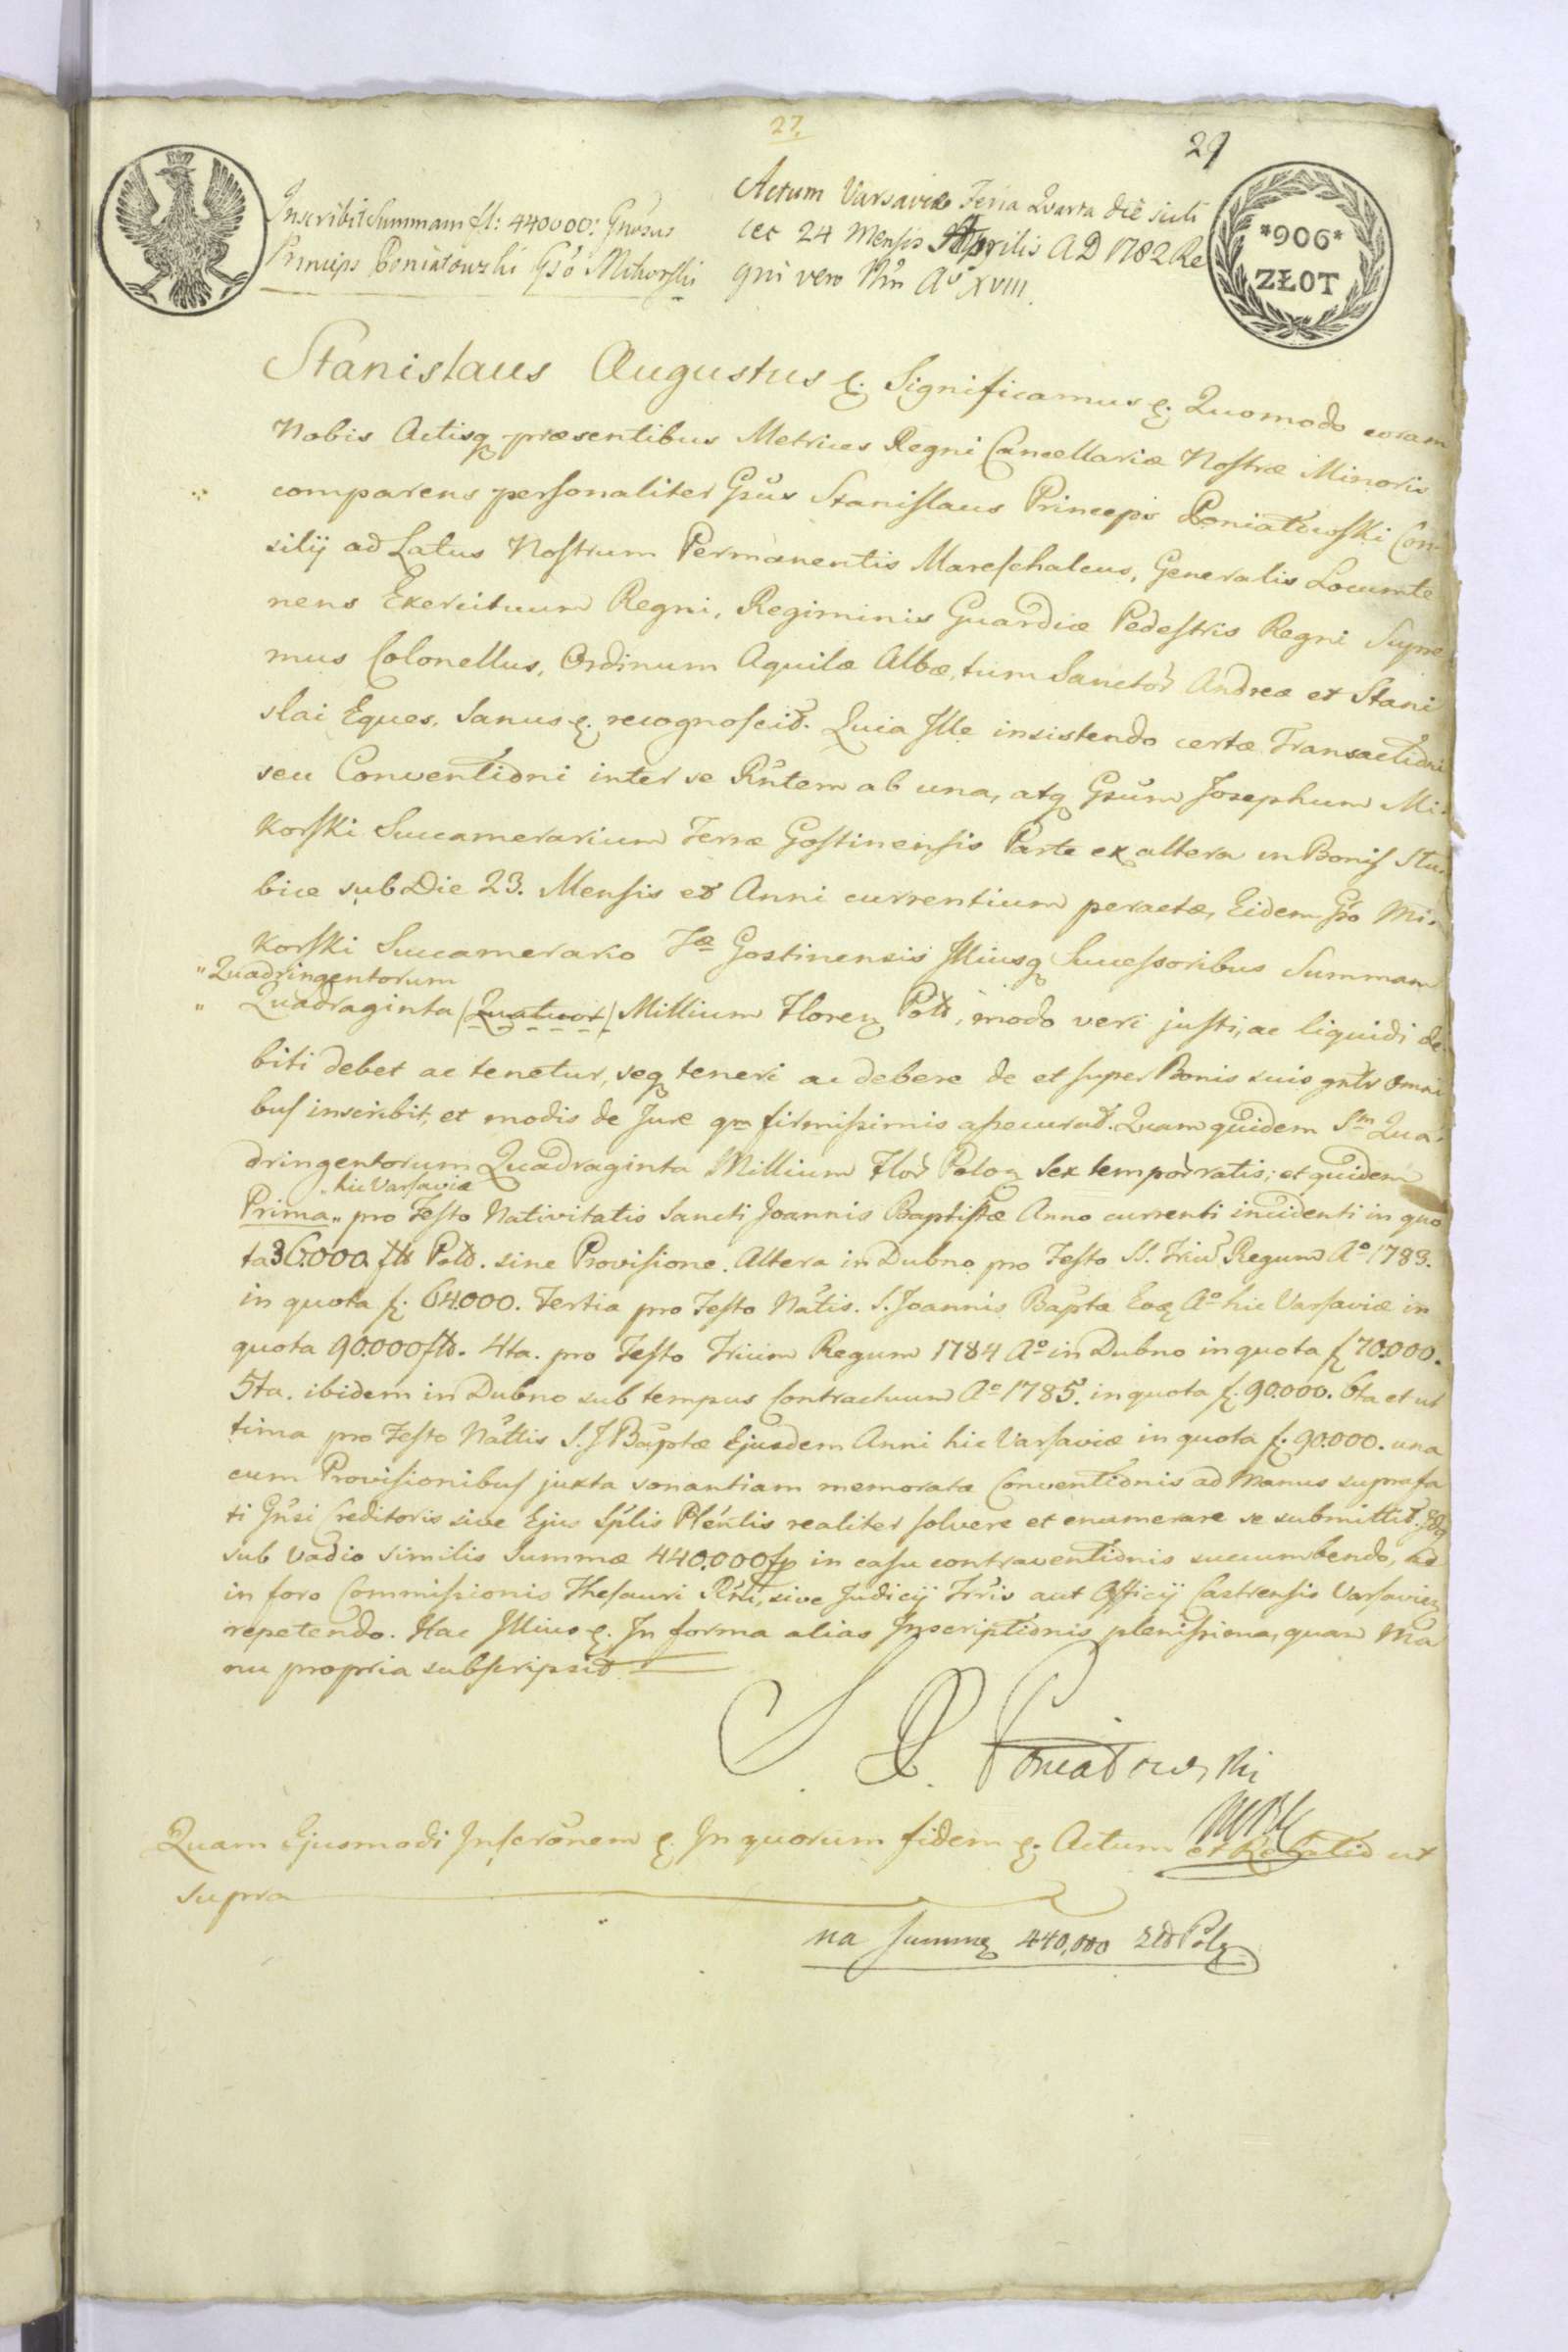 27.
29
Inscribit Summam fl: 440000: Gnosus
Princeps Poniatowski Gso Mikorski
Actum Varsaviæ Feria Quarta die scili
cet 24 Mensis Aprilis A D 1782 Re
gni vero Nri A° XVIII.
*906*
ZŁOT
Stanislaus Augustus &. Significamus &. Quomodo coram
Nobis Actisq præsentibus Metrices Regni Cancellariæ Nostræ Minoris
comparens personaliter Gsus Stanislaus Princeps Poniatowski Con-
silij ad Latus Nostrum Permanentis Mareschalcus, Generalis Locumte
nens Exercituum Regni, Regiminis Guardiæ Pedestris Regni Supre
mus Colonellus, Ordinum Aquilæ Albæ, tum Sanctor Andreæ et Stani
slai Eques, Sanus &. recognoscit. Quia Ille insistendo certæ Transactioni
seu Conventioni inter se Rntem ab una, atq Gsum Josephum Mi-
korski Succamerarium Terræ Gostinensis Parte ex altera in Bonis Stu-
bice sub Die 23. Mensis et Anni currentium peractæ, Eidem Gso Mi-
korski Succamerario Tæ Gostinensis Illiusq Successoribus Summam
" Quadringentorum
" Quadraginta (Quatuor) Millium Floren Pol, modo veri justi, ac liquidi de-
biti debet ac tenetur, seq teneri ac debere de et super Bonis suis gnlr omni
bus inscribit, et modis de Jure qm firmissimis assecurat. Quam quidem Sm Qua-
dringentorum Quadraginta Millium Flor Polon sex tempor ratis; et quidem
" hic Varsaviæ
Prima " pro Festo Nativitatis Sancti Joannis Baptistæ Anno currenti incidenti in quo
ta 36.000 fl Pol. sine Provisione. Altera in Dubno pro Festo SS. Triu Regum A° 1783.
in quota f. 64.000. Tertia pro Festo Natis. S. Joannis Bapta Eoq A° hic Varsaviæ in
quota 90.000 fl. 4ta. pro Festo Trium Regum 1784 A° in Dubno in quota f 70.000.
5ta. ibidem in Dubno sub tempus Contractuum A° 1785. in quota f. 90.000. 6ta et ul
tima pro Festo Nattis S. J Baptæ Ejusdem Anni hic Varsaviæ in quota f. 90.000. una
cum Provisionibus juxta sonantiam memoratæ Conventionis ad Manus suprafa
ti Gnsi Creditoris sive Ejus Splis Plentis realiter solvere et enumerare se submittit.
sub Vadio similis Summæ 440.000 fp in casu contraventionis succumbendo, ac
in foro Commissionis Thesauri Rni, sive Judicij Trris aut Officij Castrensis Varsavien
repetendo. Hac Illius &. In forma alias Inscriptionis plenissima, quam Ma
nu propria subscripsit
S P. Poniatowski
Quam Ejusmodi Inscronem &. In quorum fidem &. Actum et ut
supra
na summę 440,000 Zł Pol